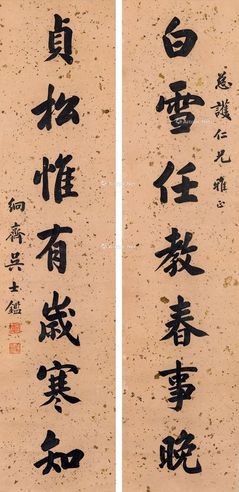 慈護仁兄雅正
白雪任教春事晚
貞松惟有歲寒知
絅齋吳士鑑